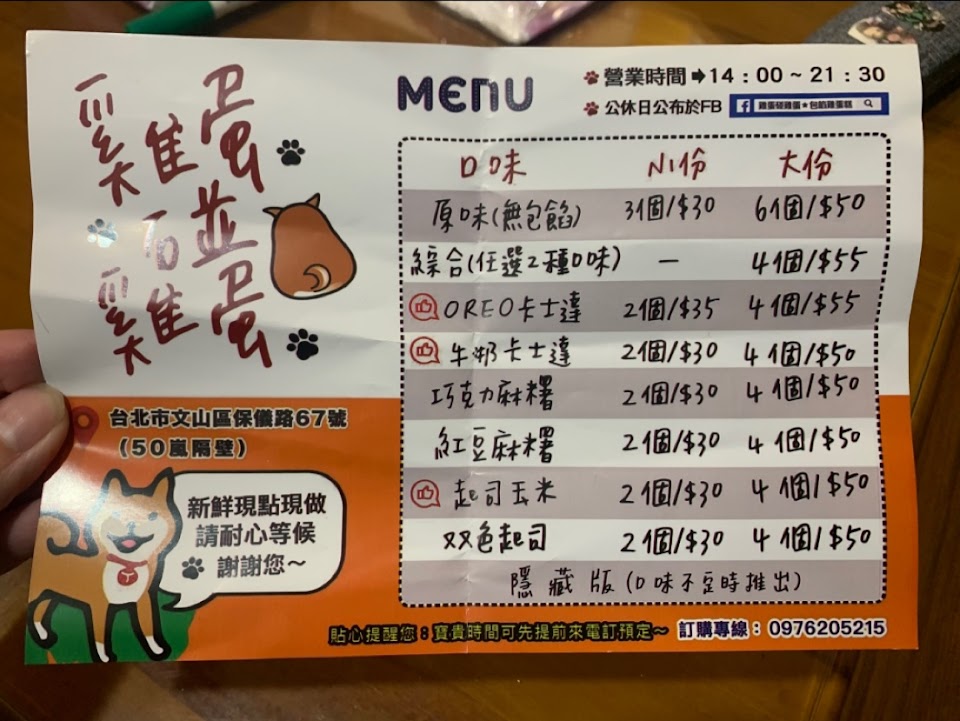 雞蛋
碰
雞蛋
台北市文山區保儀路67號
(50嵐隔壁)
新鮮現點現做
請耐心等候
謝謝您～
MENU
營業時間➡14：00～21：30
公休日公布於FB
雞蛋碰雞蛋★包餡雞蛋糕
口味 小份 大份
原味(無包餡) 3個/$30 6個/$50
綜合(任選2種口味) — 4個/$55
OREO卡士達 2個/$35 4個/$55
牛奶卡士達 2個/$30 4個/$50
巧克力麻糬 2個/$30 4個/$50
紅豆麻糬 2個/$30 4個/$50
起司玉米 2個/$30 4個/$50
双色起司 2個/$30 4個/$50
隱藏版(口味不定時推出)
貼心提醒您：寶貴時間可先提前來電訂預定～ 訂購專線：0976205215